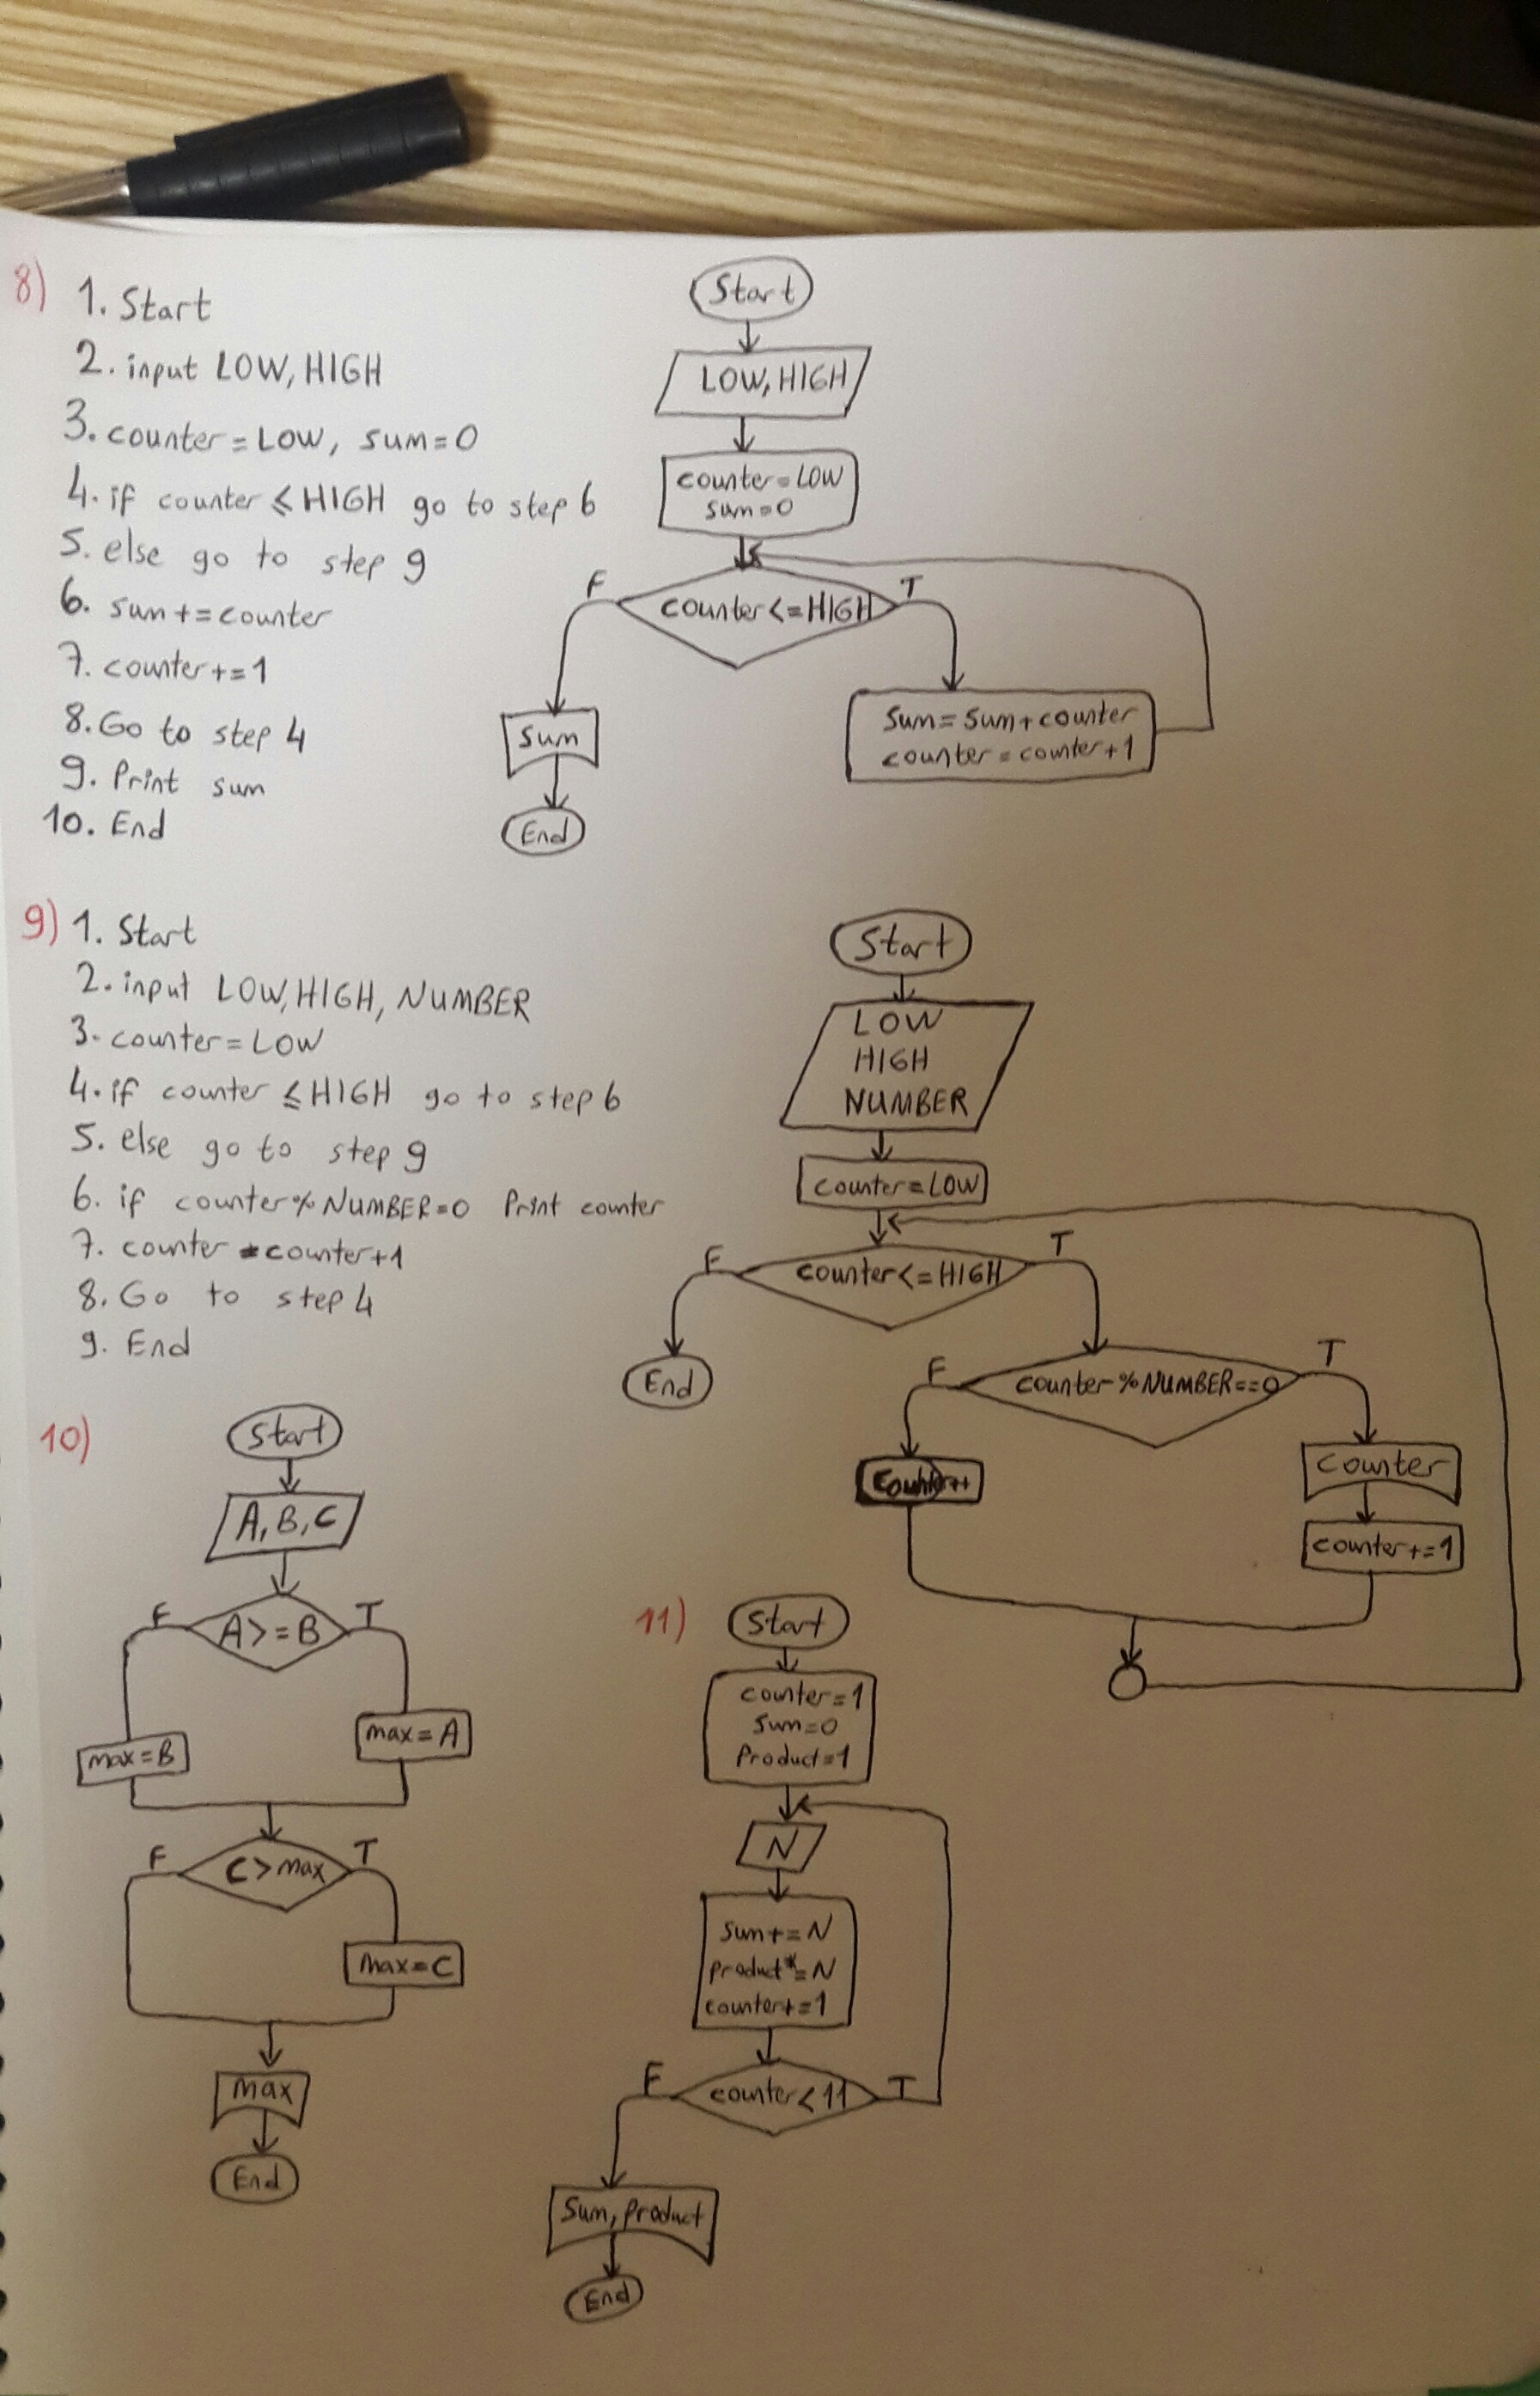 8)
1. Start
2. input LOW, HIGH
3. counter = LOW, sum=0
4. if counter ≤ HIGH go to step 6
5. else go to step 9
6. sum+=counter
7. counter+=1
8. Go to step 4
9. Print sum
10. End
Start
LOW, HIGH
counter=LOW
sum=0
counter<=HIGH
F
T
sum
End
sum=sum+counter
counter=counter+1
9)
1. Start
2. input LOW, HIGH, NUMBER
3. counter=LOW
4. if counter ≤ HIGH go to step 6
5. else go to step 9
6. if counter%NUMBER=0 Print counter
7. counter=counter+1
8. Go to step 4
9. End
Start
LOW
HIGH
NUMBER
counter=LOW
counter<=HIGH
F
T
End
counter%NUMBER==0
F
T
counter++
counter
counter+=1
10)
Start
A, B, C
A>=B
F
T
max=B
max=A
C>max
F
T
max=C
max
End
11)
Start
counter=1
sum=0
Product=1
N
sum+=N
product*=N
counter+=1
counter<11
F
T
Sum, product
End